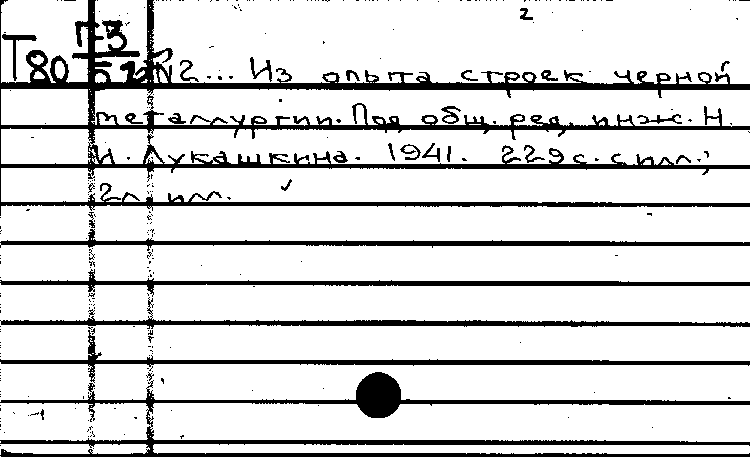 2
Г-3
Т80 №2... Из опыта строек черной
металлургии. Под общ. ред. инж. Н.
И. Лукашкина. 1941. 229 с. с илл.;
2 л. илл.